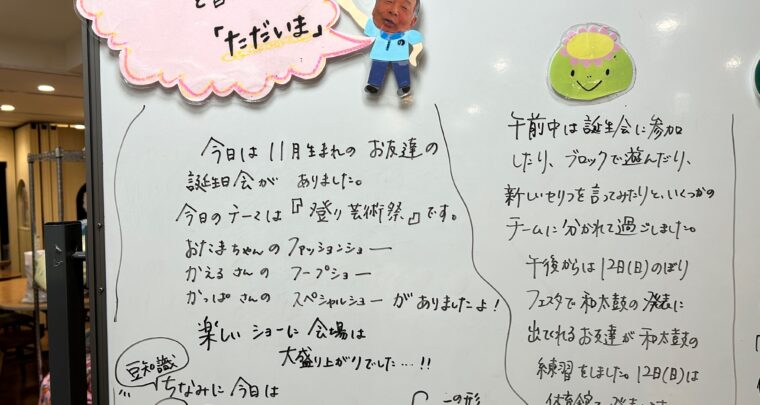 と言
「ただいま」
今日は 11月生まれの お友達の
誕生日会が ありました。
今日のテーマは『登り芸術祭』です。
おたまちゃんの ファッションショー
かえるさんの フープショー
かっぱさんの スペシャルショー がありましたよ!
楽しい ショーに 会場は
大盛り上がりでした…!!
豆知識
ちなみに 今日は
この形
午前中は誕生会に参加
したり、ブロックで遊んだり、
新しいセリフを言ってみたりと、いくつかの
チームに分かれて過ごしました。
午後からは12日(日)のぼり
フェスタで和太鼓の発表に
出てくれるお友達が和太鼓の
練習をしました。12日(日)は
体育館で